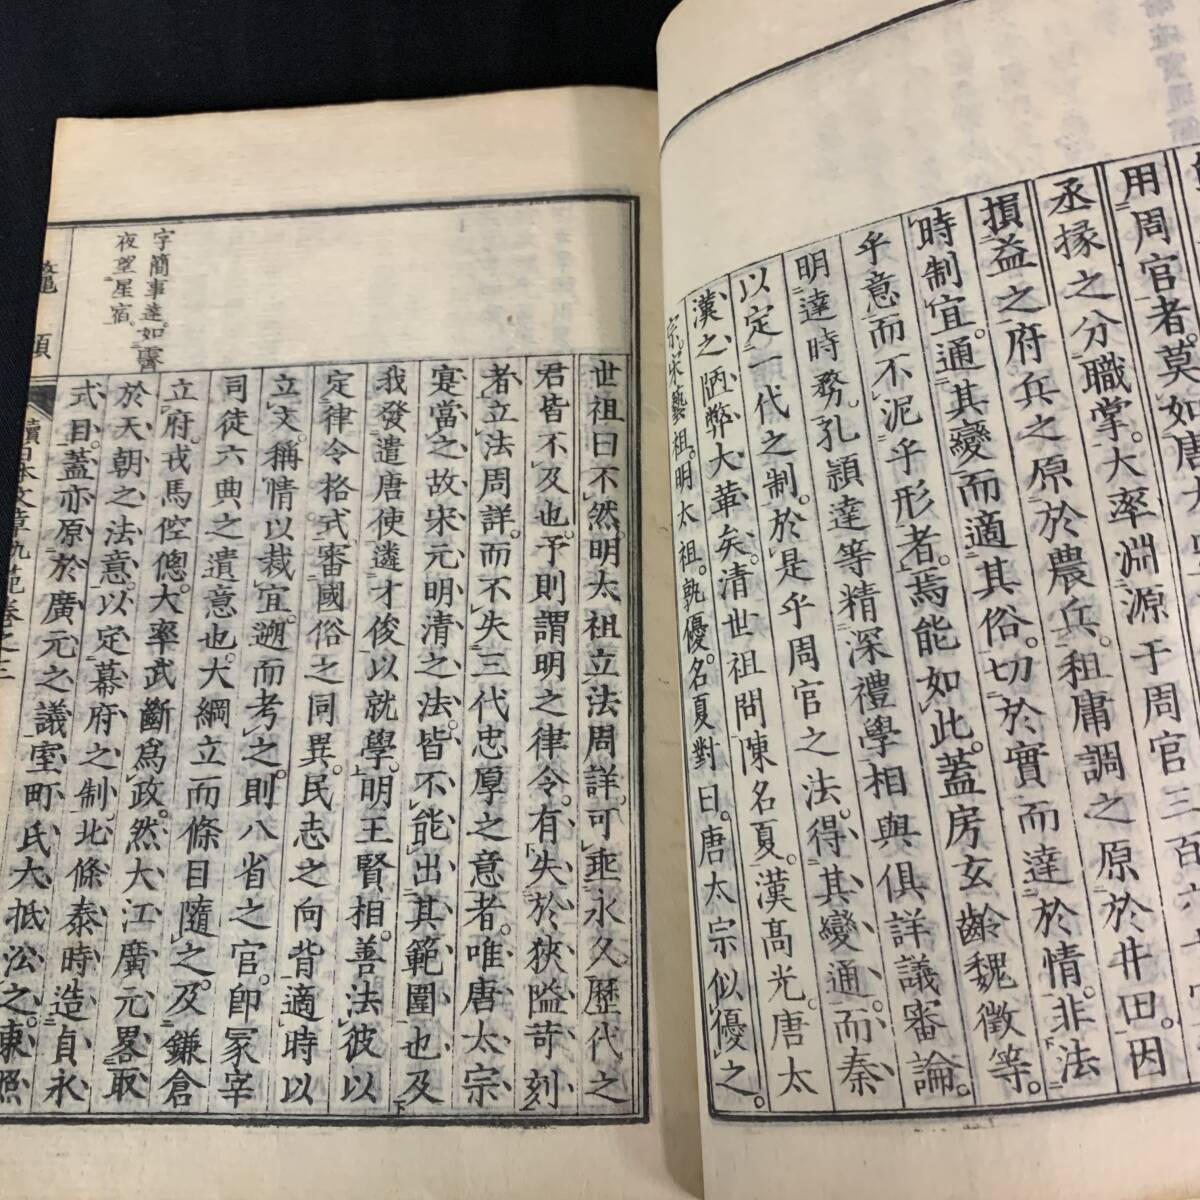 用周官者。莫如唐
丞掾之分職掌。大率淵源于周官三百六十
損益之府兵之原於農兵。租庸調之原於井田。因
時制宜。通其變而適其俗。切於實而達於情。非法
乎意而不泥乎形者。焉能如此。蓋房玄齡魏徵等。
明達時務。孔頴達等精深禮學。相與俱詳議審論。
以定一代之制。於是乎周官之法。得其變通。而秦
漢之陋弊大革矣。清世祖問陳名夏。漢高光。唐太
宗。宋藝祖。明太祖。孰優。名夏對曰。唐太宗似優之。
世祖曰。不然。明太祖立法周詳。可垂永久。歷代之
君皆不及也。予則謂明之律令。有失於狹隘苛刻
者。立法周詳。而不失三代忠厚之意者。唯唐太宗
寔當之。故宋元明清之法。皆不能出其範圍也。及
我發遣唐使。遴才俊以就學。明王賢相。善法彼以
定律令格式。審國俗之同異。民志之向背。適時以
立文。稱情以裁宜。遡而考之。則八省之官。即冢宰
司徒六典之遺意也。大綱立而條目隨之。及鎌倉
立府。戎馬倥傯。大率武斷爲政。然大江廣元畧取
於天朝之法意。以定幕府之制。北條泰時造貞永
式目。蓋亦原於廣元之議。室町氏大抵沿之。東照
字簡事達。如霽
夜望星宿。
鼇頭
續日本文章軌範卷之三